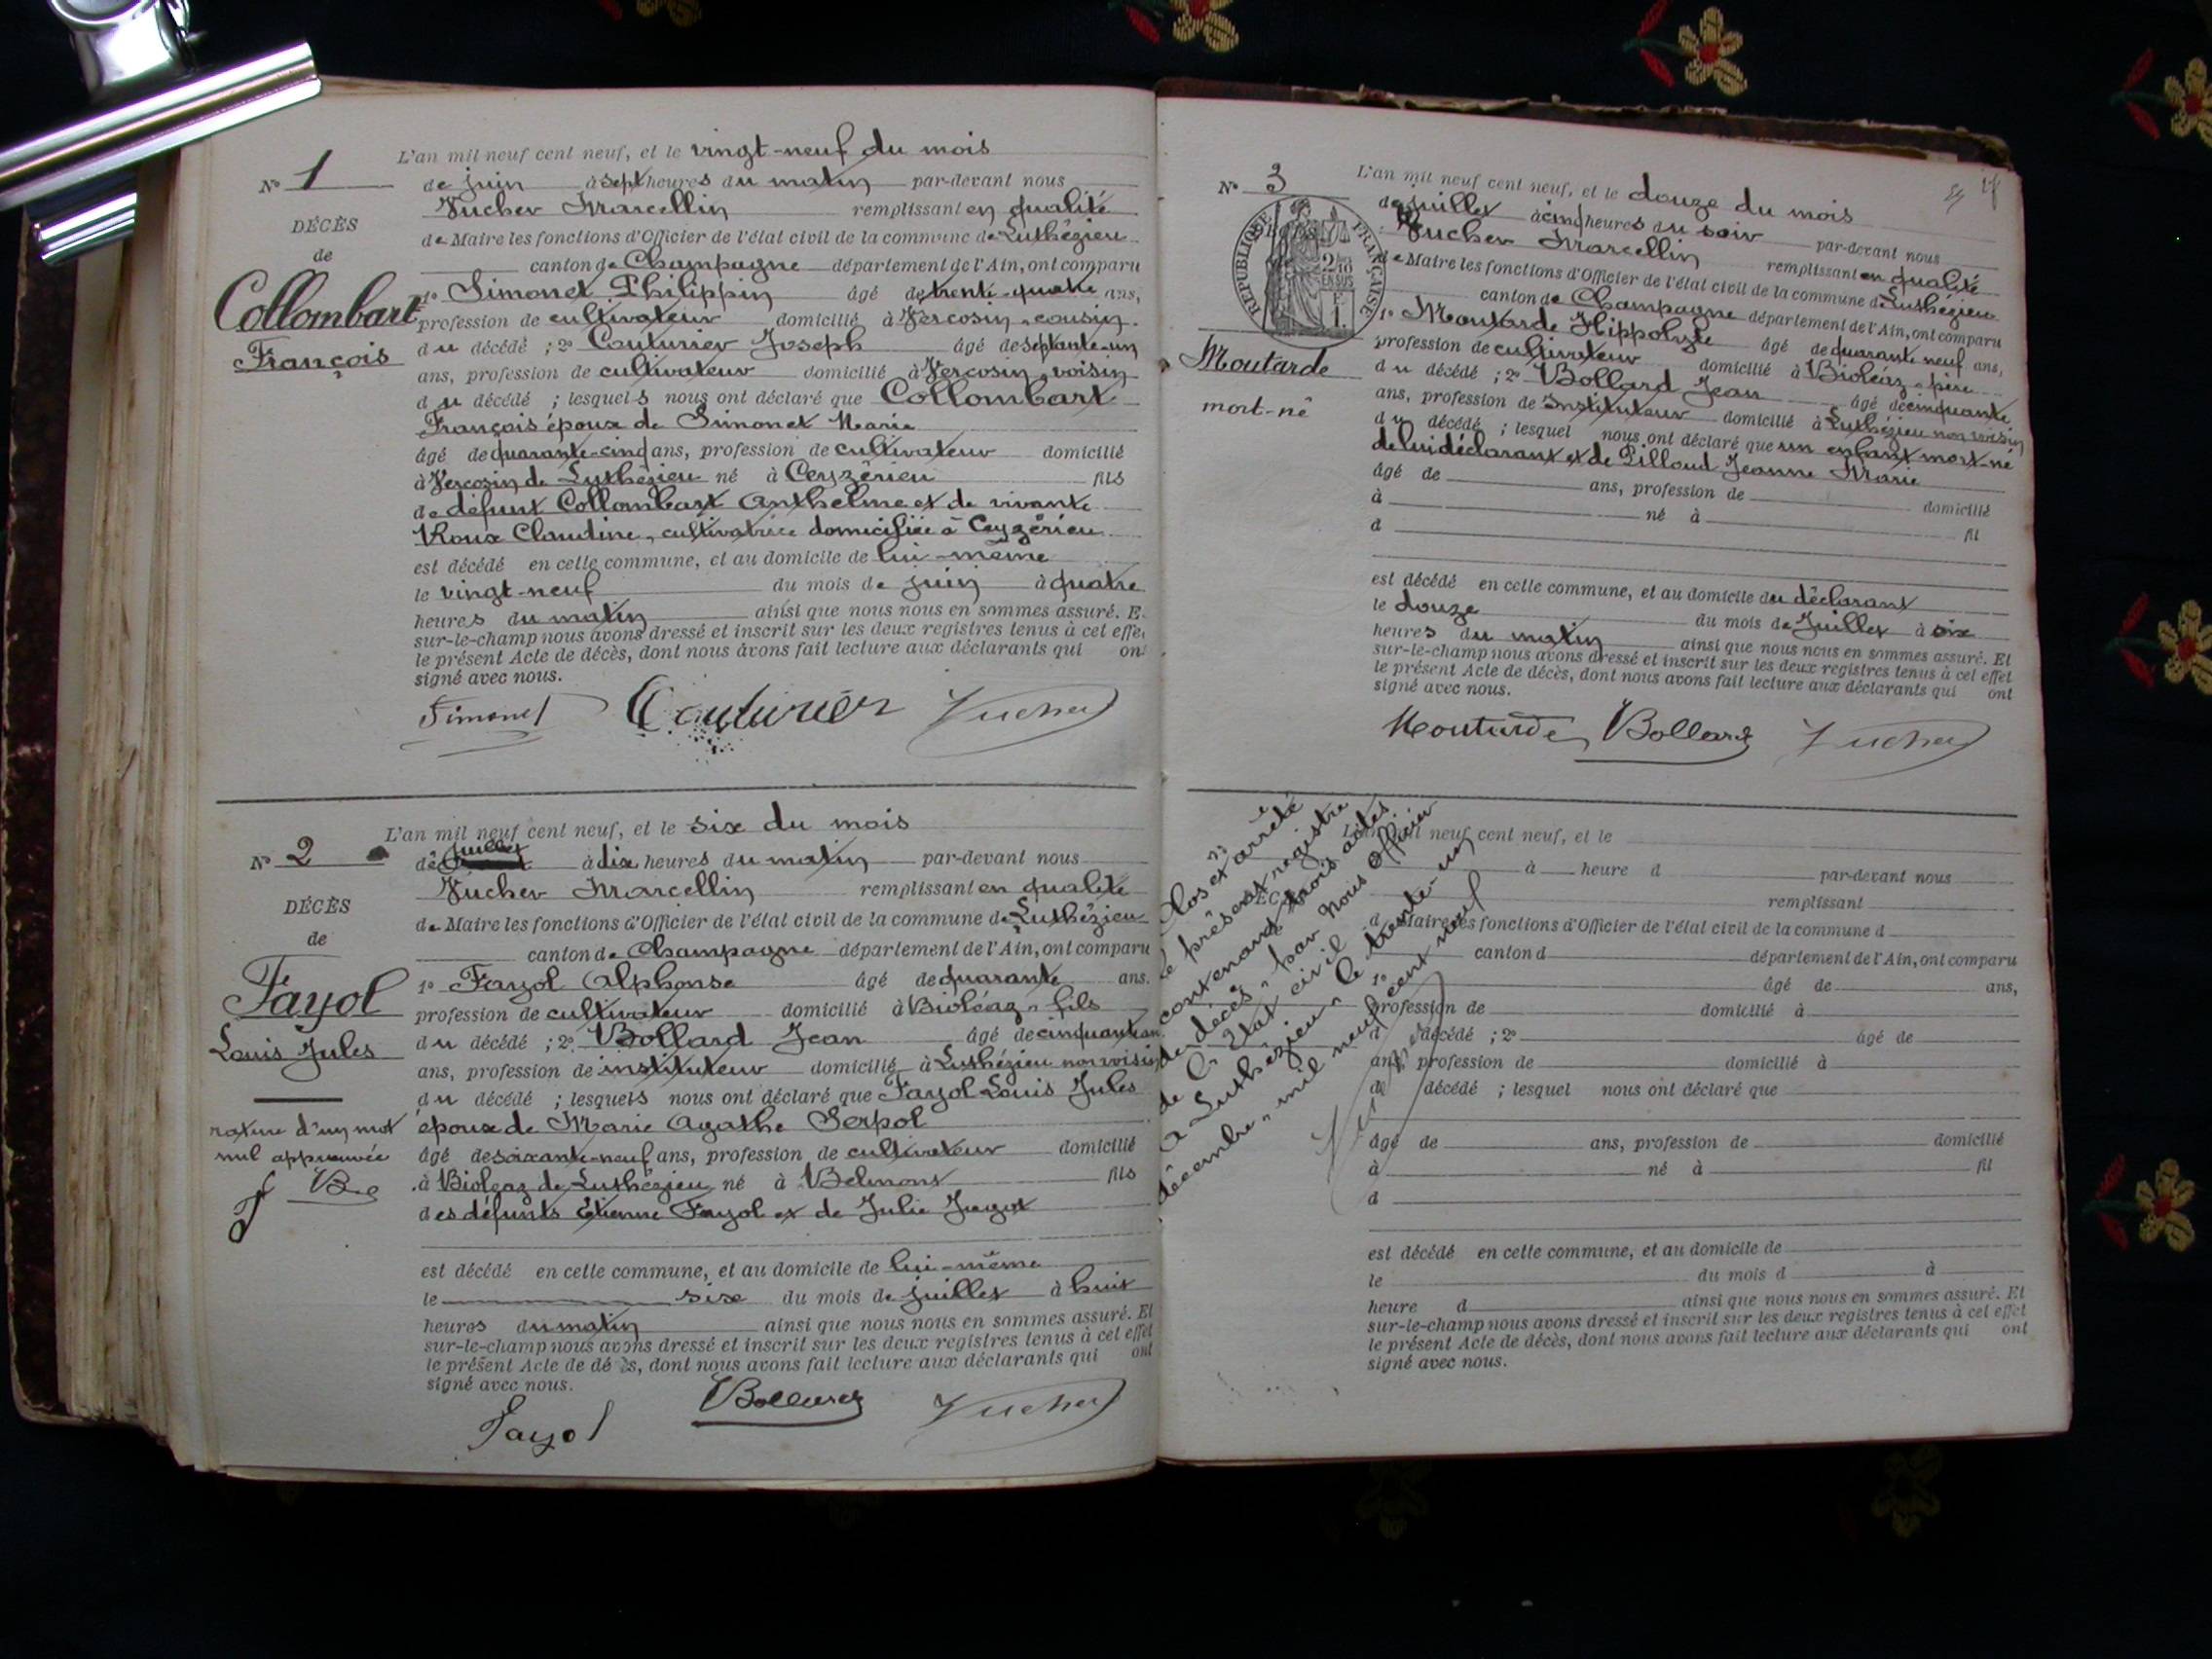 N° 1
DÉCÈS
de
Collombart
François
L'an mil neuf cent neuf, et le vingt-neuf du mois
de juin à sept heures du matin par-devant nous
Vucher Marcellin remplissant en qualité
de Maire les fonctions d'Officier de l'état civil de la commune de Luthézieu
canton de Champagne département de l'Ain, ont comparu
1° Simonet Philippin âgé de trente-quatre ans,
profession de cultivateur domicilié à Vercosin, cousin
du décédé ; 2° Couturier Joseph âgé de septante-un
ans, profession de cultivateur domicilié à Vercosin, voisin
du décédé ; lesquels nous ont déclaré que Collombart
François époux de Simonet Marie
âgé de quarante-cinq ans, profession de cultivateur domicilié
à Vercosin de Luthézieu né à Ceyzérieu fils
de défunt Collombart Anthelme et de vivante
Roux Claudine, cultivatrice domiciliée à Ceyzérieu
est décédé en cette commune, et au domicile de lui-même
le vingt-neuf du mois de juin à quatre
heures du matin ainsi que nous nous en sommes assuré. E
sur-le-champ nous avons dressé et inscrit sur les deux registres tenus à cet effe
le présent Acte de décès, dont nous avons fait lecture aux déclarants qui on
signé avec nous.
Simonet Couturier Vucher
N° 2
DÉCÈS
de
Fayol
Louis Jules
rature d'un mot
nul approuvée
L'an mil neuf cent neuf, et le six du mois
de juillet à dix heures du matin par-devant nous
Vucher Marcellin remplissant en qualité
de Maire les fonctions d'Officier de l'état civil de la commune de Luthézieu
canton de Champagne département de l'Ain, ont comparu
1° Fayol Alphonse âgé de quarante ans.
profession de cultivateur domicilié à Bioléaz, fils
du décédé ; 2° Bollard Jean âgé de cinquante
ans, profession de instituteur domicilié à Luthézieu non voisin
du décédé ; lesquels nous ont déclaré que Fayol Louis Jules
époux de Marie Agathe Serpol
âgé de soixante-neuf ans, profession de cultivateur domicilié
à Bioléaz de Luthézieu né à Belmont fils
des défunts Etienne Fayol et de Julie Jugot
est décédé en cette commune, et au domicile de lui-même
le six du mois de juillet à huit
heures du matin ainsi que nous nous en sommes assuré. Et
sur-le-champ nous avons dressé et inscrit sur les deux registres tenus à cet effet
le présent Acte de dé ès, dont nous avons fait lecture aux déclarants qui ont
signé avec nous.
Fayol Bollard Vucher
N° 3
RÉPUBLIQUE FRANÇAISE
2/10 EN SUS
1 F.
Moutarde
mort-né
L'an mil neuf cent neuf, et le douze du mois
de juillet à cinq heures du soir par-devant nous
Vucher Marcellin remplissant en qualité
de Maire les fonctions d'Officier de l'état civil de la commune de Luthézieu
canton de Champagne département de l'Ain, ont comparu
1° Moutarde Hippolyte âgé de quarante neuf ans,
profession de cultivateur domicilié à Bioléaz, père
du décédé ; 2° Bollard Jean âgé de cinquante
ans, profession de Instituteur domicilié à Luthézieu non voisin
du décédé ; lesquel nous ont déclaré que un enfant mort-né
de lui déclarant et de Pilloud Jeanne Marie
âgé de ans, profession de domicilié
à né à fil
d
est décédé en cette commune, et au domicile du déclarant
le douze du mois de Juillet à six
heures du matin ainsi que nous nous en sommes assuré. Et
sur-le-champ nous avons dressé et inscrit sur les deux registres tenus à cet effet
le présent Acte de décès, dont nous avons fait lecture aux déclarants qui ont
signé avec nous.
Moutarde Bollard Vucher
Clos et arrêté
le présent registre
contenant trois actes
de décès, par nous Officier
de l'Etat civil
A Luthézieu, le trente-un
décembre, mil neuf cent neuf
Vucher
L'an mil neuf cent neuf, et le
à heure d par-devant nous
remplissant
d Maire les fonctions d'Officier de l'état civil de la commune d
canton d département de l'Ain, ont comparu
1° âgé de ans,
profession de domicilié à
d décédé ; 2° âgé de
ans, profession de domicilié à
d décédé ; lesquel nous ont déclaré que
âgé de ans, profession de domicilié
à né à fil
d
est décédé en cette commune, et au domicile de
le du mois d à
heure d ainsi que nous nous en sommes assuré. Et
sur-le-champ nous avons dressé et inscrit sur les deux registres tenus à cet effet
le présent Acte de décès, dont nous avons fait lecture aux déclarants qui ont
signé avec nous.